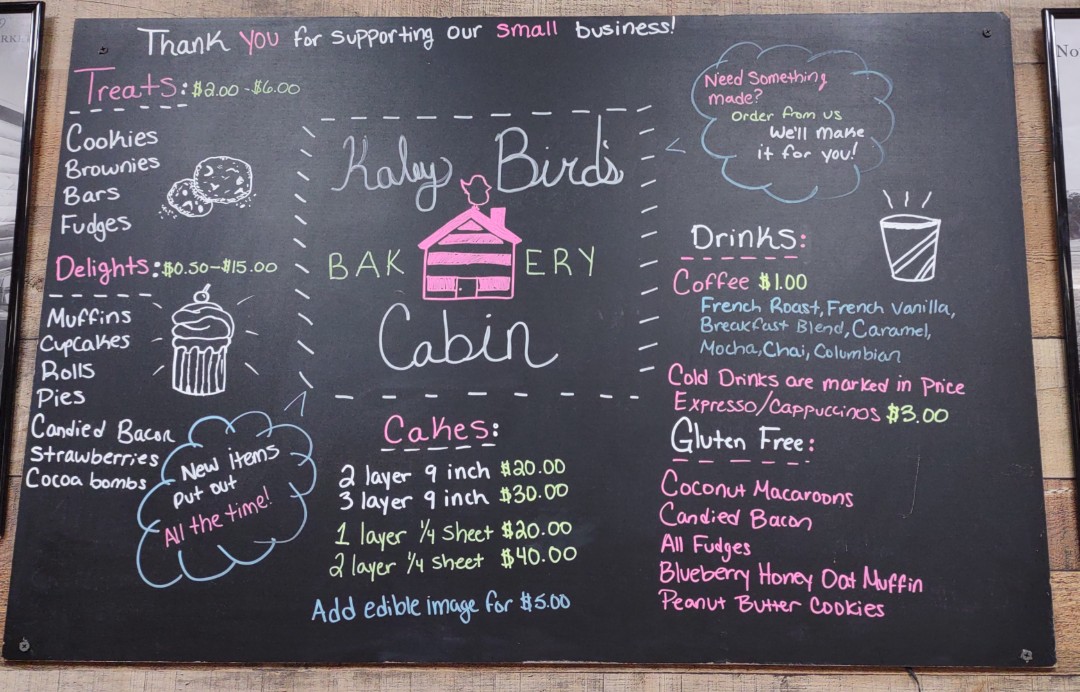 Thank you for supporting our small business!
Treats: $2.00 - $6.00
Cookies
Brownies
Bars
Fudges
Delights: $0.50-$15.00
Muffins
Cupcakes
Rolls
Pies
Candied Bacon
Strawberries
Cocoa bombs
New items
put out
All the time!
Kaley Bird's
BAKERY
Cabin
Cakes:
2 layer 9 inch $20.00
3 layer 9 inch $30.00
1 layer 1/4 sheet $20.00
2 layer 1/4 sheet $40.00
Add edible image for $5.00
Need Something
made?
Order from us
We'll make
it for you!
Drinks:
Coffee $1.00
French Roast, French Vanilla,
Breakfast Blend, Caramel,
Mocha, Chai, Columbian
Cold Drinks are marked in Price
Expresso/Cappuccinos $3.00
Gluten Free:
Coconut Macaroons
Candied Bacon
All Fudges
Blueberry Honey Oat Muffin
Peanut Butter Cookies